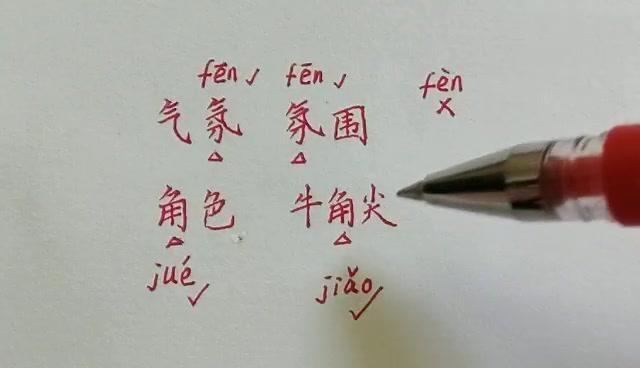 fēn✓ fēn✓ fèn ×
气氛 氛围
角色 牛角尖
jué✓ jiǎo✓